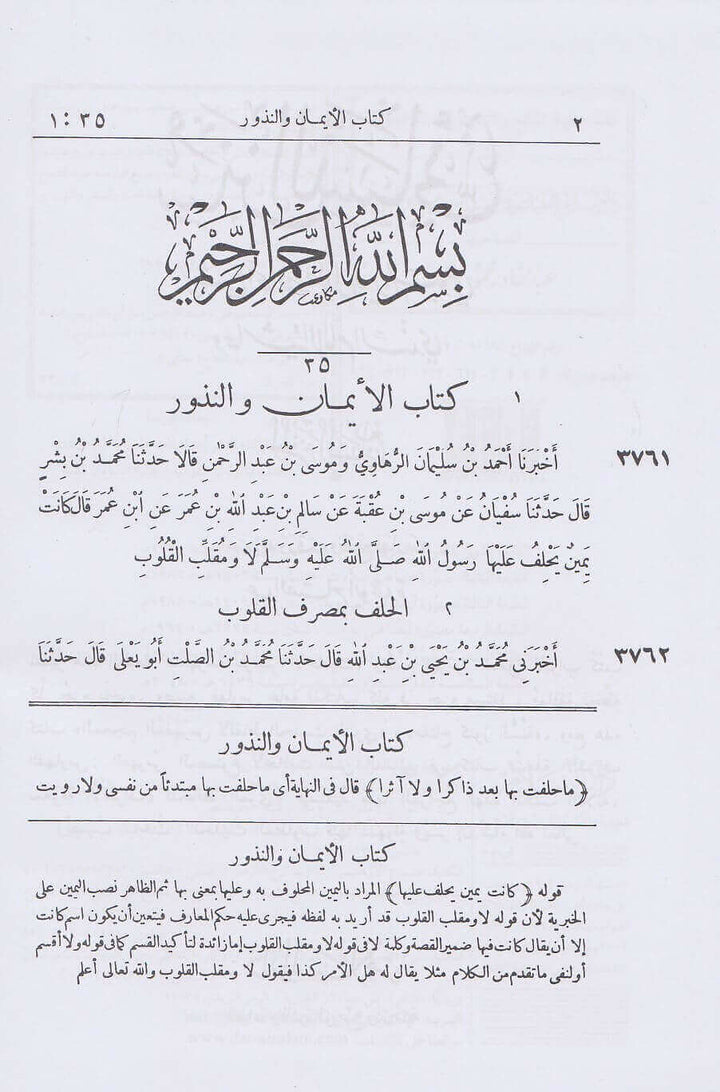 ٢ كتاب الأيمان والنذور ٣٥ : ١
بِسْمِ اللَّهِ الرَّحْمَنِ الرَّحِيمِ
٣٥
١ كتاب الأيمان والنذور
٣٧٦١ أَخْبَرَنَا أَحْمَدُ بْنُ سُلَيْمَانَ الرُّهَاوِيُّ وَمُوسَى بْنُ عَبْدِ الرَّحْمٰنِ قَالَا حَدَّثَنَا مُحَمَّدُ بْنُ بِشْرٍ
قَالَ حَدَّثَنَا سُفْيَانُ عَنْ مُوسَى بْنِ عُقْبَةَ عَنْ سَالِمِ بْنِ عَبْدِ اللهِ بْنِ عُمَرَ عَنِ ابْنِ عُمَرَ قَالَ كَانَتْ
يَمِينٌ يَحْلِفُ عَلَيْهَا رَسُولُ اللهِ صَلَّى اللهُ عَلَيْهِ وَسَلَّمَ لَا وَمُقَلِّبِ الْقُلُوبِ
٢ الحلف بمصرف القلوب
٣٧٦٢ أَخْبَرَنِي مُحَمَّدُ بْنُ يَحْيَى بْنِ عَبْدِ اللهِ قَالَ حَدَّثَنَا مُحَمَّدُ بْنُ الصَّلْتِ أَبُو يَعْلَى قَالَ حَدَّثَنَا
كتاب الأيمان والنذور
﴿ما حلفت بها بعد ذاكرا ولا آثرا﴾ قال فى النهاية أى ما حلفت بها مبتدئا من نفسى ولا رويت
كتاب الأيمان والنذور
قوله ﴿كانت يمين يحلف عليها﴾ المراد باليمين المحلوف به وعليها بمعنى بها ثم الظاهر نصب اليمين على
الخبرية لأن قوله لا ومقلب القلوب قد أريد به لفظه فيجرى عليه حكم المعارف فيتعين أن يكون اسم كانت
إلا أن يقال كانت فيها ضمير القصة وكلمة لا فى قوله لا ومقلب القلوب إما زائدة لتأكيد القسم كما فى قوله ولا أقسم
أو لنفى ما تقدم من الكلام مثلا يقال له هل الأمر كذا فيقول لا ومقلب القلوب والله تعالى أعلم